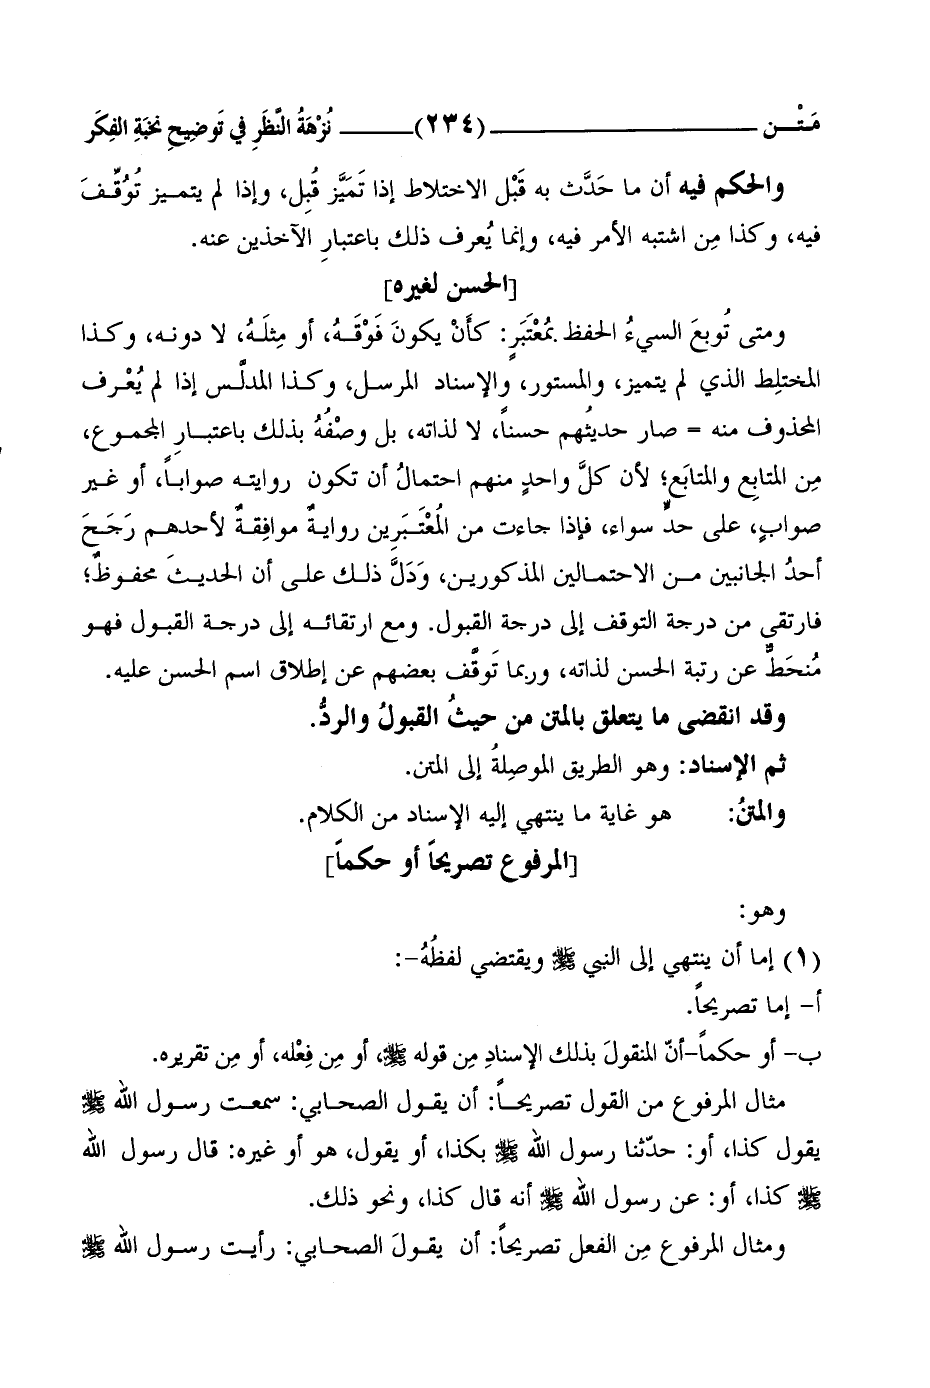 مَتْن (٢٣٤) نُزْهَةُ النَّظَرِ فِي تَوضِيحِ نُخْبَةِ الفِكَر
والحكم فيه أن ما حَدَّث به قَبْل الاختلاط إذا تَمَيَّز قُبِل، وإذا لم يتميز تُوُقِّفَ
فيه، وكذا مِن اشتبه الأمر فيه، وإنما يُعرف ذلك باعتبارِ الآخذين عنه.
[الحسن لغيره]
ومتى تُوبعَ السيءُ الحفظ بمُعْتَبَرٍ: كأَنْ يكونَ فَوْقَهُ، أو مِثلَهُ، لا دونه، وكذا
المختلِط الذي لم يتميز، والمستور، والإسناد المرسل، وكذا المدلَّس إذا لم يُعْرف
المحذوف منه = صار حديثُهم حسناً، لا لذاته، بل وصْفُهُ بذلك باعتبارِ المجموع،
مِن المتابِع والمتابَع؛ لأن كلَّ واحدٍ منهم احتمالُ أن تكون روايته صواباً، أو غير
صوابٍ، على حدٍّ سواء، فإذا جاءت من المُعْتَبَرِين روايةٌ موافِقةٌ لأحدهم رَجَحَ
أحدُ الجانبين من الاحتمالين المذكورين، وَدَلَّ ذلك على أن الحديثَ محفوظٌ؛
فارتقى من درجة التوقف إلى درجة القبول. ومع ارتقائه إلى درجة القبول فهو
مُنحَطٌّ عن رتبة الحسن لذاته، وربما تَوقَّف بعضهم عن إطلاق اسم الحسن عليه.
وقد انقضى ما يتعلق بالمتن من حيثُ القبولُ والردُّ.
ثم الإسناد: وهو الطريق الموصِلةُ إلى المتن.
والمتنُ: هو غاية ما ينتهي إليه الإسناد من الكلام.
[المرفوع تصريحاً أو حكماً]
وهو:
(١) إما أن ينتهي إلى النبي ﷺ ويقتضي لفظُهُ-:
أ- إما تصريحاً.
ب- أو حكماً-أنّ المنقولَ بذلك الإسنادِ مِن قوله ﷺ، أو مِن فِعْله، أو مِن تقريره.
مثال المرفوع من القول تصريحاً: أن يقول الصحابي: سمعت رسول الله ﷺ
يقول كذا، أو: حدّثنا رسول الله ﷺ بكذا، أو يقول، هو أو غيره: قال رسول الله
ﷺ كذا، أو: عن رسول الله ﷺ أنه قال كذا، ونحو ذلك.
ومثال المرفوع مِن الفعل تصريحاً: أن يقولَ الصحابي: رأيت رسول الله ﷺ